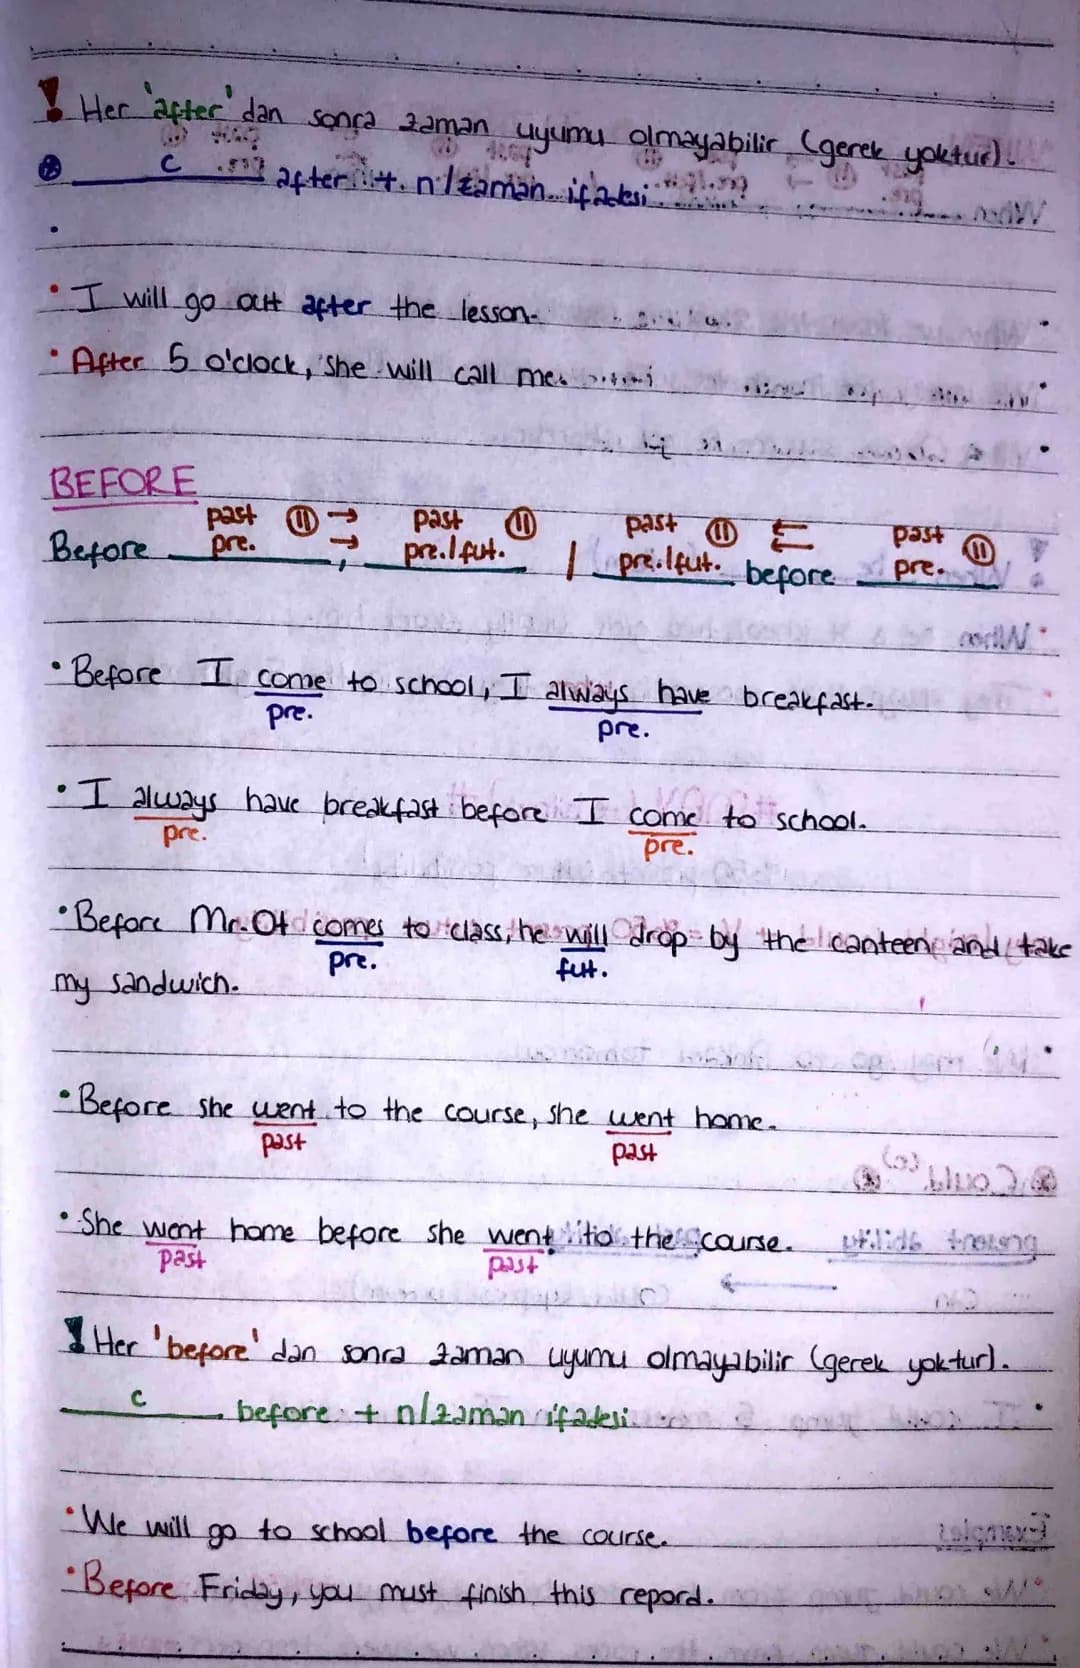 ! Her 'after' dan sonra zaman uyumu olmayabilir (gerek yoktur).
c after + n/zaman ifadesi
• I will go out after the lesson.
• After 5 o'clock, she will call me.
BEFORE
past ⑪ → past ⑪ past ⑪ ← past ⑪
Before pre. → , pre./fut. / pre./fut. ← before pre.
• Before I come to school, I always have breakfast.
pre. pre.
• I always have breakfast before I come to school.
pre. pre.
• Before Mr. Ot comes to class, he will drop by the canteen and take
pre. fut.
my sandwich.
• Before she went to the course, she went home.
past past
• She went home before she went to the course.
past past
! Her 'before' dan sonra zaman uyumu olmayabilir (gerek yoktur).
c before + n/zaman ifadesi
• We will go to school before the course.
• Before Friday, you must finish this repord.